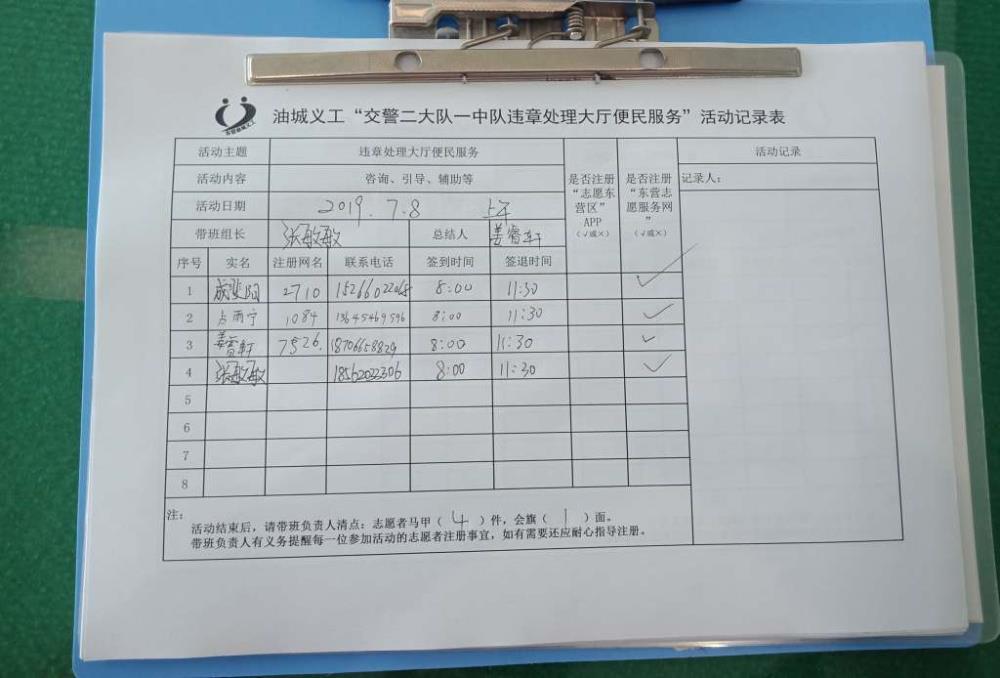 油城义工“交警二大队一中队违章处理大厅便民服务”活动记录表
活动主题 违章处理大厅便民服务 是否注册“志愿东营区”APP（√或×） 是否注册“东营志愿服务网”（√或×） 活动记录
活动内容 咨询、引导、辅助等 记录人：
活动日期 2019.7.8 上午
带班组长 张敏敏 总结人 姜睿轩
序号 实名 注册网名 联系电话 签到时间 签退时间
1 2710 15266022065 8:00 11:30 √
2 占雨宁 1084 13645469596 8:00 11:30 √
3 姜睿轩 7526. 18706658829 8:00 11:30 √
4 张敏敏 18562022306 8:00 11:30 √
5
6
7
8
注：
活动结束后，请带班负责人清点：志愿者马甲（ 4 ）件，会旗（ 1 ）面。
带班负责人有义务提醒每一位参加活动的志愿者注册事宜，如有需要还应耐心指导注册。